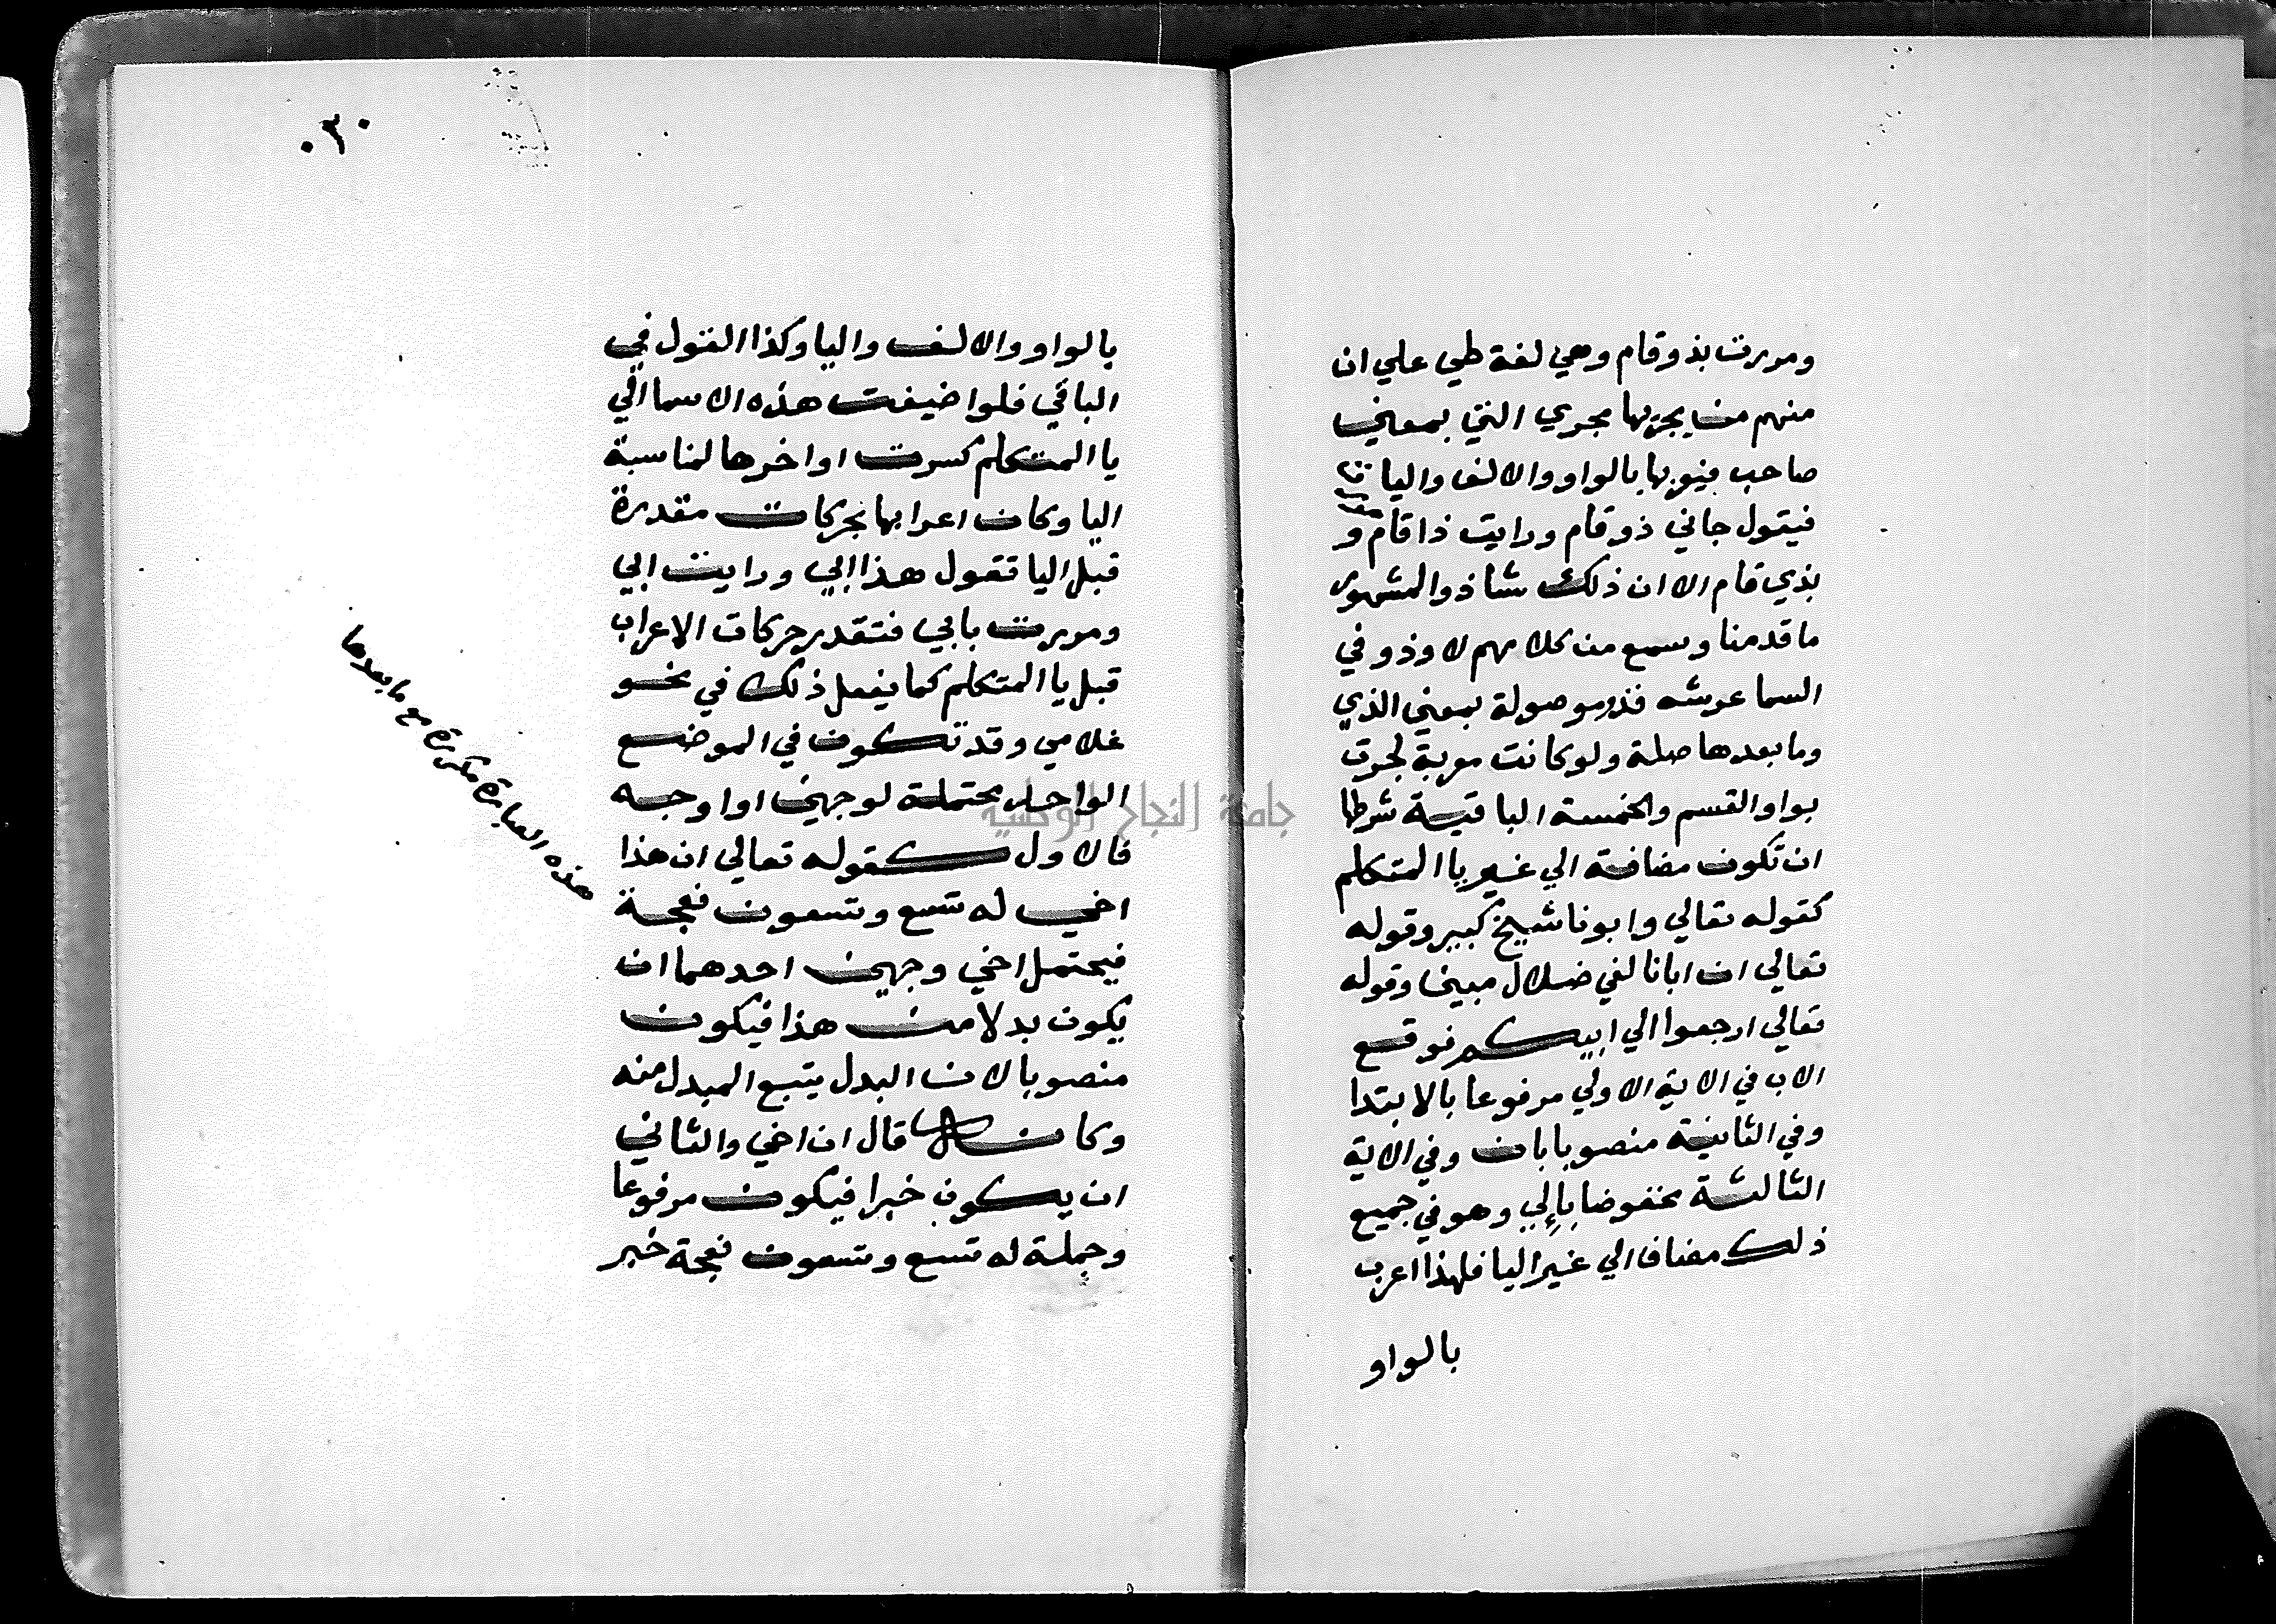 ومررت بذو قام وهي لغة طي علي ان
منهم من يجريها مجري التي بمعني
صاحب فيعربها بالواو والالف واليا
فيقول جاني ذو قام ورايت ذا قام و
بذي قام الا ان ذلك شاذ والمشهور
ما قدمنا وسمع من كلامهم لا وذو في
السما عرشه فذو موصولة بمعني الذي
وما بعدها صلة ولو كانت معربة لجرت
بواو القسم والخمسة الباقية شرطها
ان تكون مضافة الي غير يا المتكلم
كقوله تعالي وابونا شيخ كبير وقوله
تعالي ان ابانا لفي ضلال مبين وقوله
تعالي ارجعوا الي ابيكم فوقع
الاب في الاية الاولي مرفوعا بالابتدا
وفي الثانية منصوبا بان وفي الاية
الثالثة مخفوضا بإلي وهو في جميع
ذلك مضافا الي غير اليا فلهذا اعرب
بالواو
٠٣٠
بالواو والالف واليا وكذا القول في
الباقي فلو اضيفت هذه الاسما الي
يا المتكلم كسرت اواخرها لمناسبة
اليا وكان اعرابها بحركات مقدرة
قبل اليا تقول هذا ابي ورايت ابي
ومررت بابي فتقدر حركات الاعراب
قبل يا المتكلم كما يفعل ذلك في نحو
غلامي وقد تكون في الموضع
الواحد محتملة لوجهين او اوجه
فالاول كقوله تعالي ان هذا
اخي له تسع وتسعون نعجة
فيحتمل اخي وجهين احدهما ان
يكون بدلا من هذا فيكون
منصوبا لان البدل يتبع المبدل منه
وكان قال ان اخي والثاني
ان يكون خبرا فيكون مرفوعا
وجملة له تسع وتسعون نعجة خبر
هذه العبارة مكررة مع ما بعدها
جامعة النجاح الوطنية